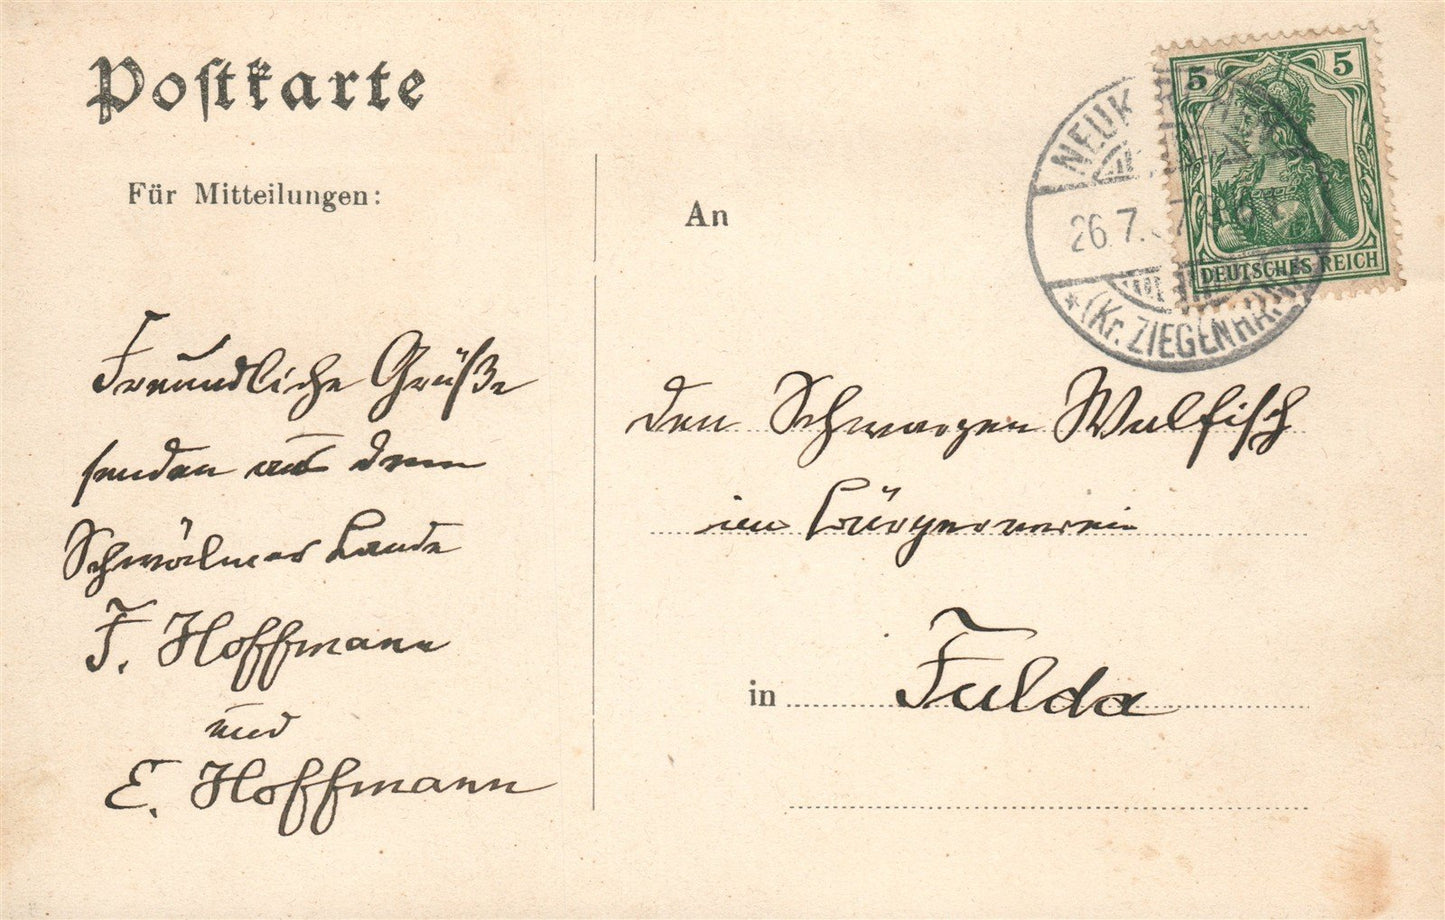 Postkarte
Für Mitteilungen:
Freundliche Grüße
senden aus dem
Schwälmer Lande
F. Hoffmann
und
E. Hoffmann
An
den Schwarzen Walfisch
im Bürgerverein
in Fulda
5 5
DEUTSCHES REICH
26.7.
* (Kr. ZIEGENHAIN)